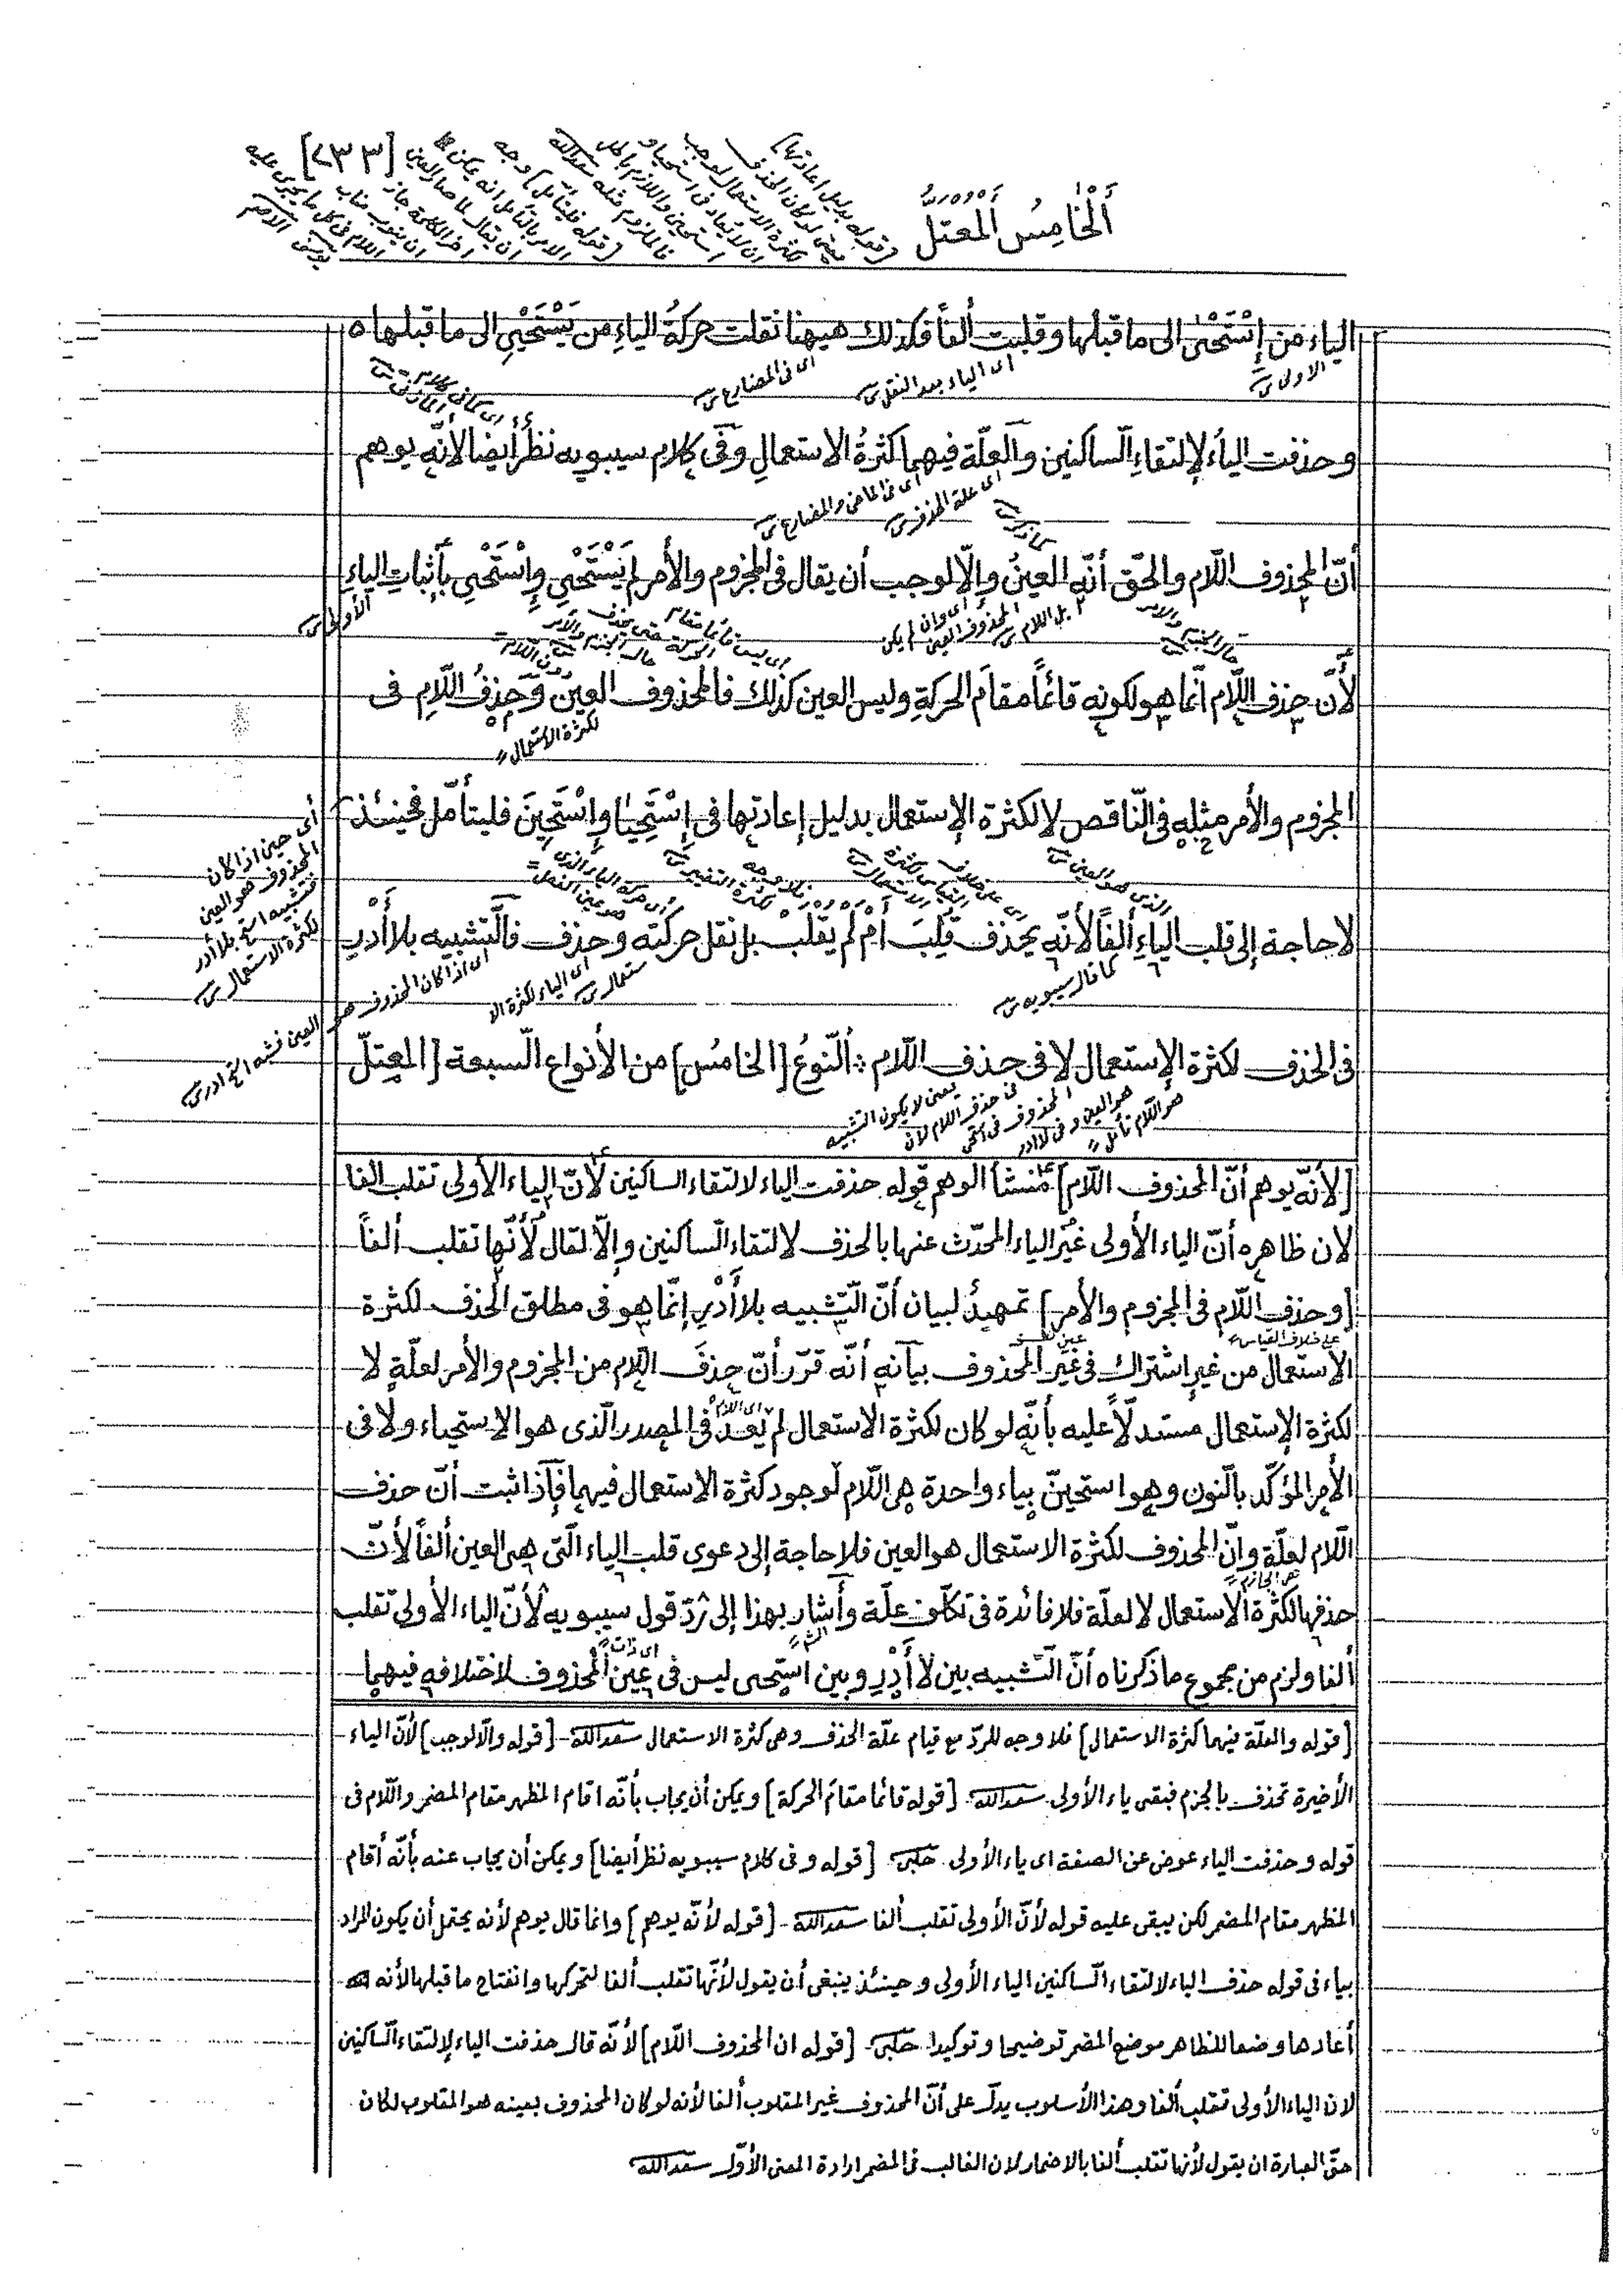 [٢٣٣]
أَلْخَامِسُ أَلْمُعْتَلُّ
الياء من إِسْتَحْىٰ الى ما قبلها وقلبت أَلفاً فكذلك هيهنا نقلت حركةُ الياءِ من يَسْتَحْيِىِ الى ما قبلها
الاولى
اى الياء بعد النقل
اى فى المضارع
وحذفت الياءُ لإلتقاءِ السّاكنين والعلّة فيهما كثرةُ الاستعمالِ وفى كلام سيبويه نظرٌ أيضا لأنّه يوهم
اى علة الحذف
اى فى الماضى والمضارع
أنّ المحذوف اللّام والحقّ أنّه العينُ وإلّا لوجب أن يقال فى المجزوم والأمر لم يَسْتَحْيِ وإِسْتَحْيِ بأثبات الياءِ
الأولى
بل اللام
اى وان لم يكن المحذوف العين
لأنّ حذف اللّام انّما هو لكونه قائماً مقامَ الحركةِ وليس العين كذلك فالمحذوف العين وحذفُ اللّامِ فى
لكثرة الاستعمال
المجزوم والأمر مثله فى النّاقص لا لكثرة الإستعمال بدليل إعادتها فى إِسْتَحْيِيَا وإسْتَحْيِينَ فليتأمّل فحينئذ
اى حين اذ كان
المحذوف هو العين
فتشبيه استحى بلا أدر
لكثرة الاستعمال
الذى هو العين
لا حاجة إلى قلب الياءِ ألفاً لأنّه يحذف قُلِبَ أَمْ لَمْ يُقْلَبْ بل نقل حركته وحذف فالتّشبيه بلا أَدْرِ
كما قال سيبويه
اى الياء لكثرة الاستعمال
اى اذا كان المحذوف هو العين
فى الحذف لكثرة الإستعمال لا فى حذف اللّام ؞ ألنّوعُ [الخامسُ] من الأنواع السّبعة [المعتلّ
يعنى لا يكون التشبيه
فى حذف اللام لان
المحذوف فى استحى
هو العين وفى لا ادر
هو اللّام تأمل
[لأنّه يوهم أنّ المحذوف اللّام] منشأ الوهم قوله حذفت الياء لالتقاء الساكنين لأنّ الياء الأولى تقلب الفا
لان ظاهره أنّ الياء الأولى غير الياء المحدّث عنها بالحذف لالتقاء السّاكنين وإلّا لقال لأنّها تقلب ألفاً
[وحذف اللّام فى المجزوم والأمر] تمهيدٌ لبيان أنّ التّشبيه بلا أَدْرِ إنّما هو فى مطلق الحذف لكثرة
على خلاف القياس
الإستعمال من غير اشتراك فى غير المحذوف بيانه أنّه قرّر أنّ حذفَ اللّام من المجزوم والأمر لعلّةٍ لا
لكثرة الإستعمال مستدلّاً عليه بأنّه لو كان لكثرة الاستعمال لم يعد فى المصدر الّذى هو الاستحياء ولا فى
اى اللام
الأمر المؤكّد بالنّون وهو استحينّ بياء واحدة هى اللّام لوجود كثرة الاستعمال فيهما فإذا ثبت أنّ حذف
اللّام لعلّة وانّ المحذوف لكثرة الاستعمال هو العين فلا حاجة إلى دعوى قلب الياء الّتى هى العين ألفاً لأنّ
حذفها لكثرة الاستعمال لا لعلّة فلا فائدة فى تكلّف علّة وأشار بهذا إلى ردّ قول سيبويه لأنّ الياء الأولى تقلب
ألفا ولزم من مجموع ما ذكرناه أنّ التّشبيه بين لا أَدْرِ وبين استحى ليس فى عين المحذوف لاختلافه فيهما
[قوله والعلّة فيهما كثرة الاستعمال] فلا وجه للردّ مع قيام علّة الحذف وهى كثرة الاستعمال سعد الله [قوله والّا لوجب] لأنّ الياء
الأخيرة تحذف بالجزم فبقى ياء الأولى سعد الله [قوله قائما مقام الحركة] ويمكن أن يجاب بأنّه اقام المظهر مقام المضمر واللّام فى
قوله وحذفت الياء عوض عن الصفة اى ياء الأولى حلبى [قوله وفى كلام سيبويه نظر أيضا] ويمكن أن يجاب عنه بأنّه أقام
المظهر مقام المضمر لكن يبقى عليه قوله لأنّ الأولى تقلب ألفا سعد الله [قوله لأنّه يوهم] وانما قال يوهم لأنه يحتمل أن يكون المراد
بياء فى قوله حذف الياء لالتقاء السّاكنين الياء الأولى وحينئذ ينبغى أن يقول لأنّها تقلب ألفا لتحركها وانفتاح ما قبلها لأنه
أعادها وضعا للظاهر موضع المضمر توضيحا وتوكيدا حلبى [قوله ان المحذوف اللّام] لأنّه قال حذفت الياء لإلتقاء السّاكنين
لان الياء الأولى تقلب ألفا وهذا الأسلوب يدلّ على أنّ المحذوف غير المقلوب ألفا لأنه لو كان المحذوف بعينه هو المقلوب لكان
حقّ العبارة ان يقول لأنها تقلب ألفا بالاضمار لان الغالب فى المضمر ارادة المعنى الأوّل سعد الله